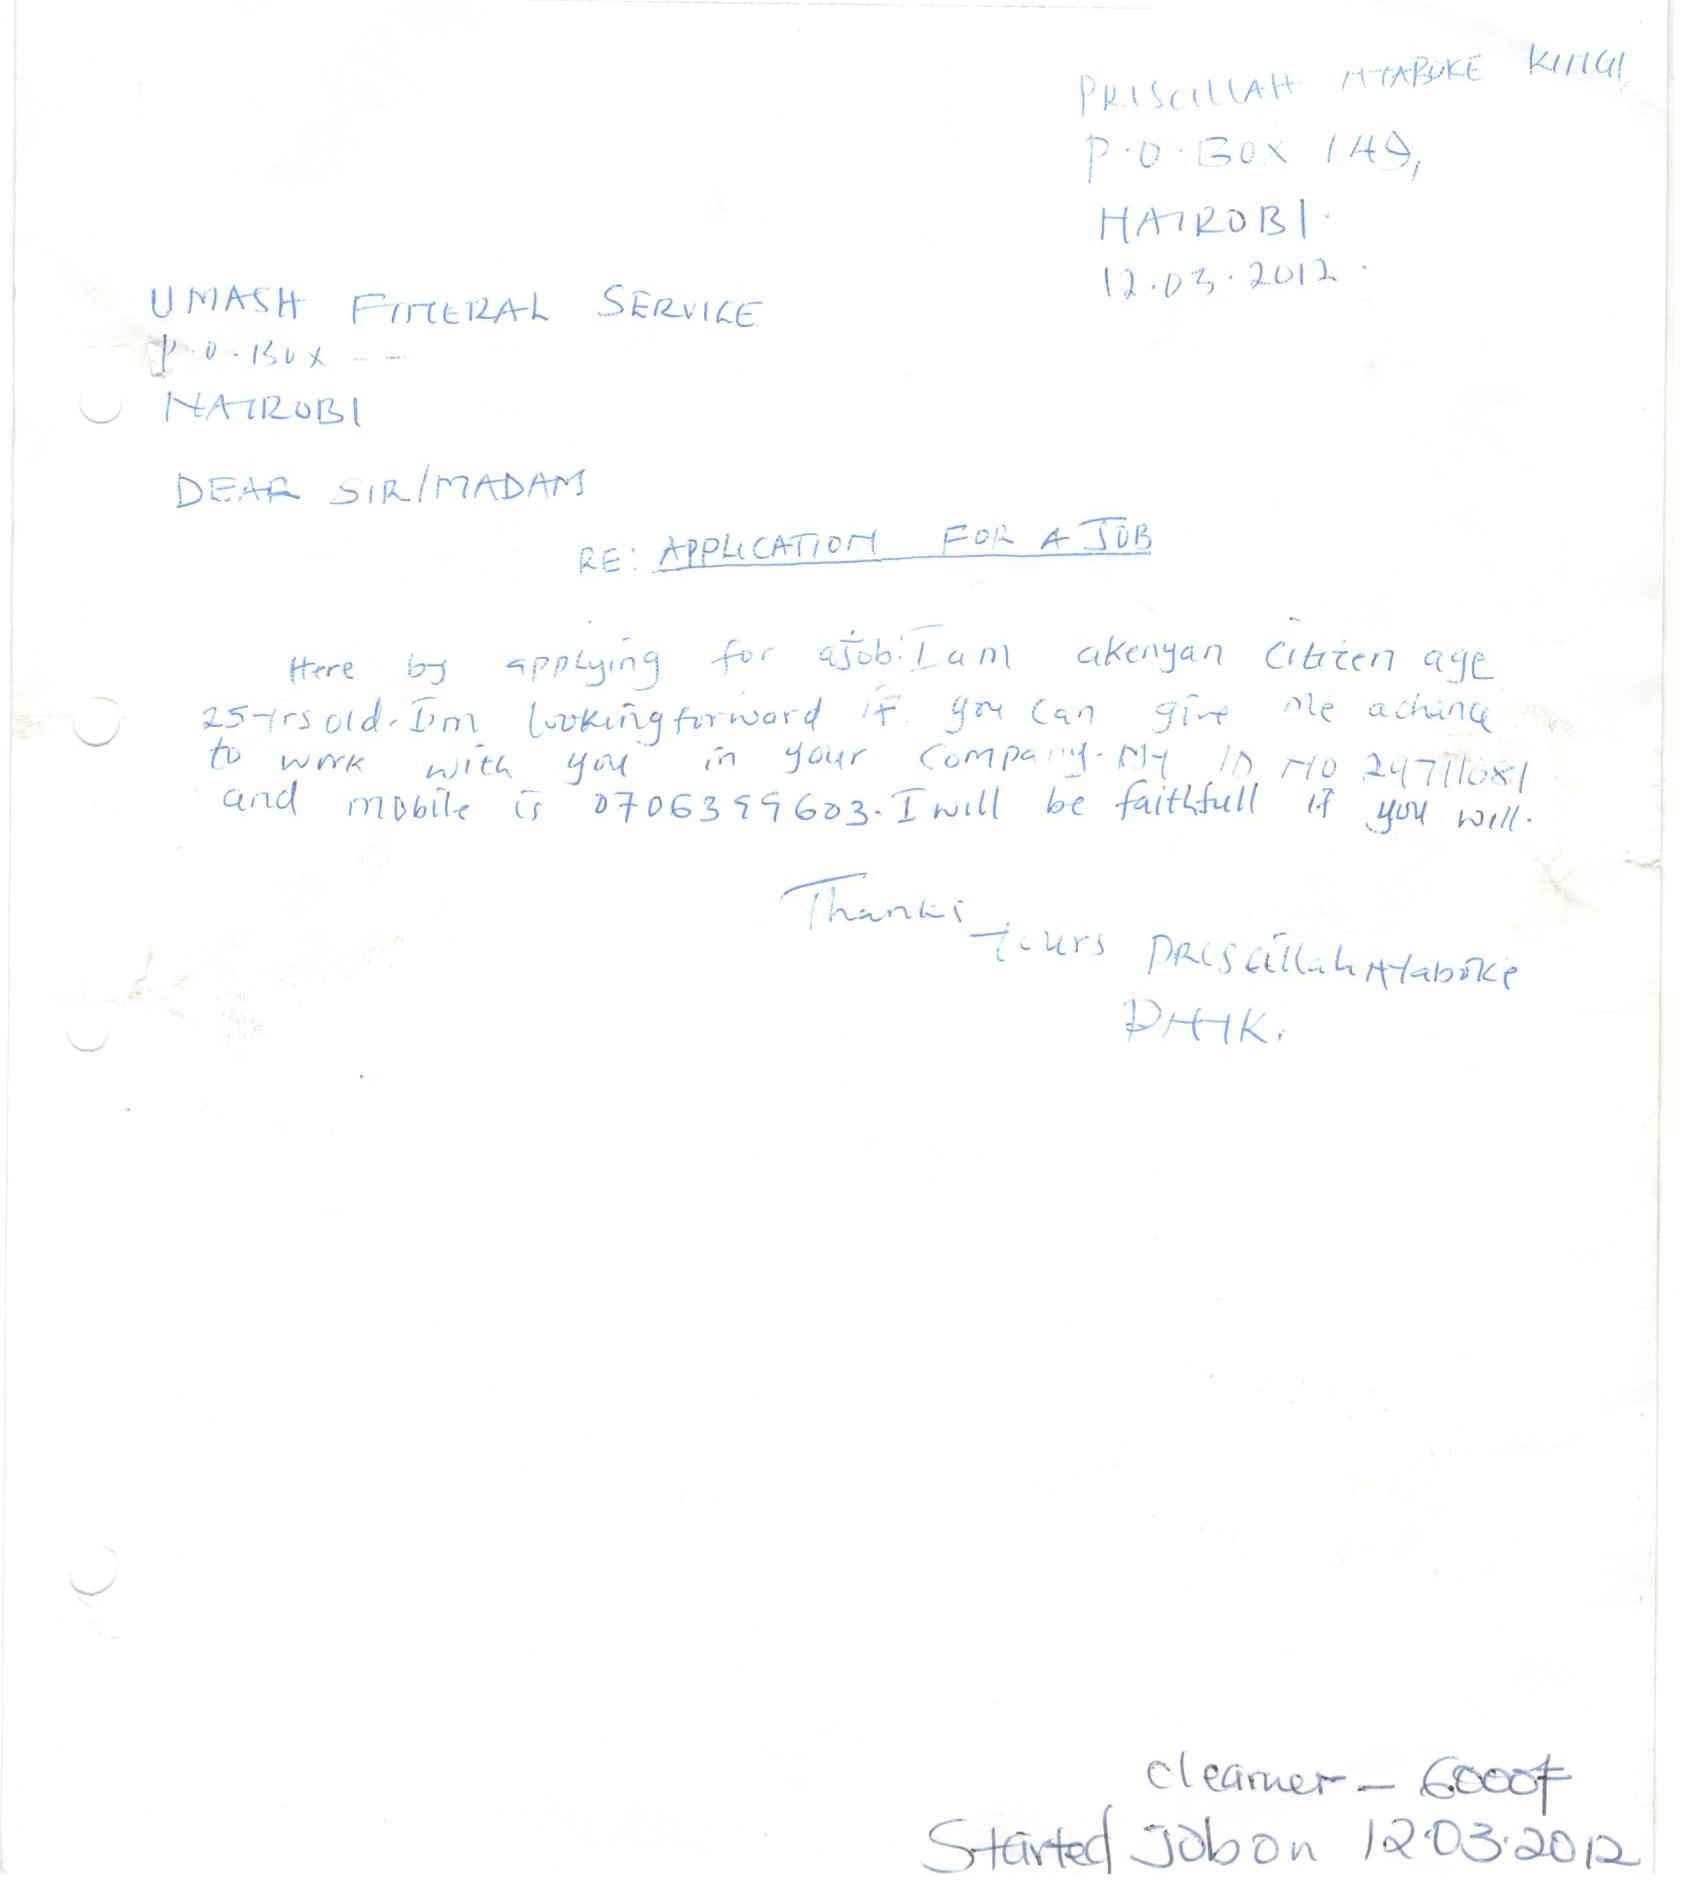 PRISCILLAH NYABOKE KINGI
P.O. BOX 149,
NAIROBI.
12.03.2012.
UMASH FUNERAL SERVICE
P.O. BOX --
NAIROBI
DEAR SIR/MADAM
RE: APPLICATION FOR A JOB
Here by applying for ajob. I am akenyan citizen age
25 yrs old. I'm looking forward if you can give me achance
to work with you in your company. My ID NO
and mobile is 0706399603. I will be faithfull if you will.
Thanks
Yours Priscillah Nyaboke
PNK.
cleaner - 6000
Started Job on 12.03.2012